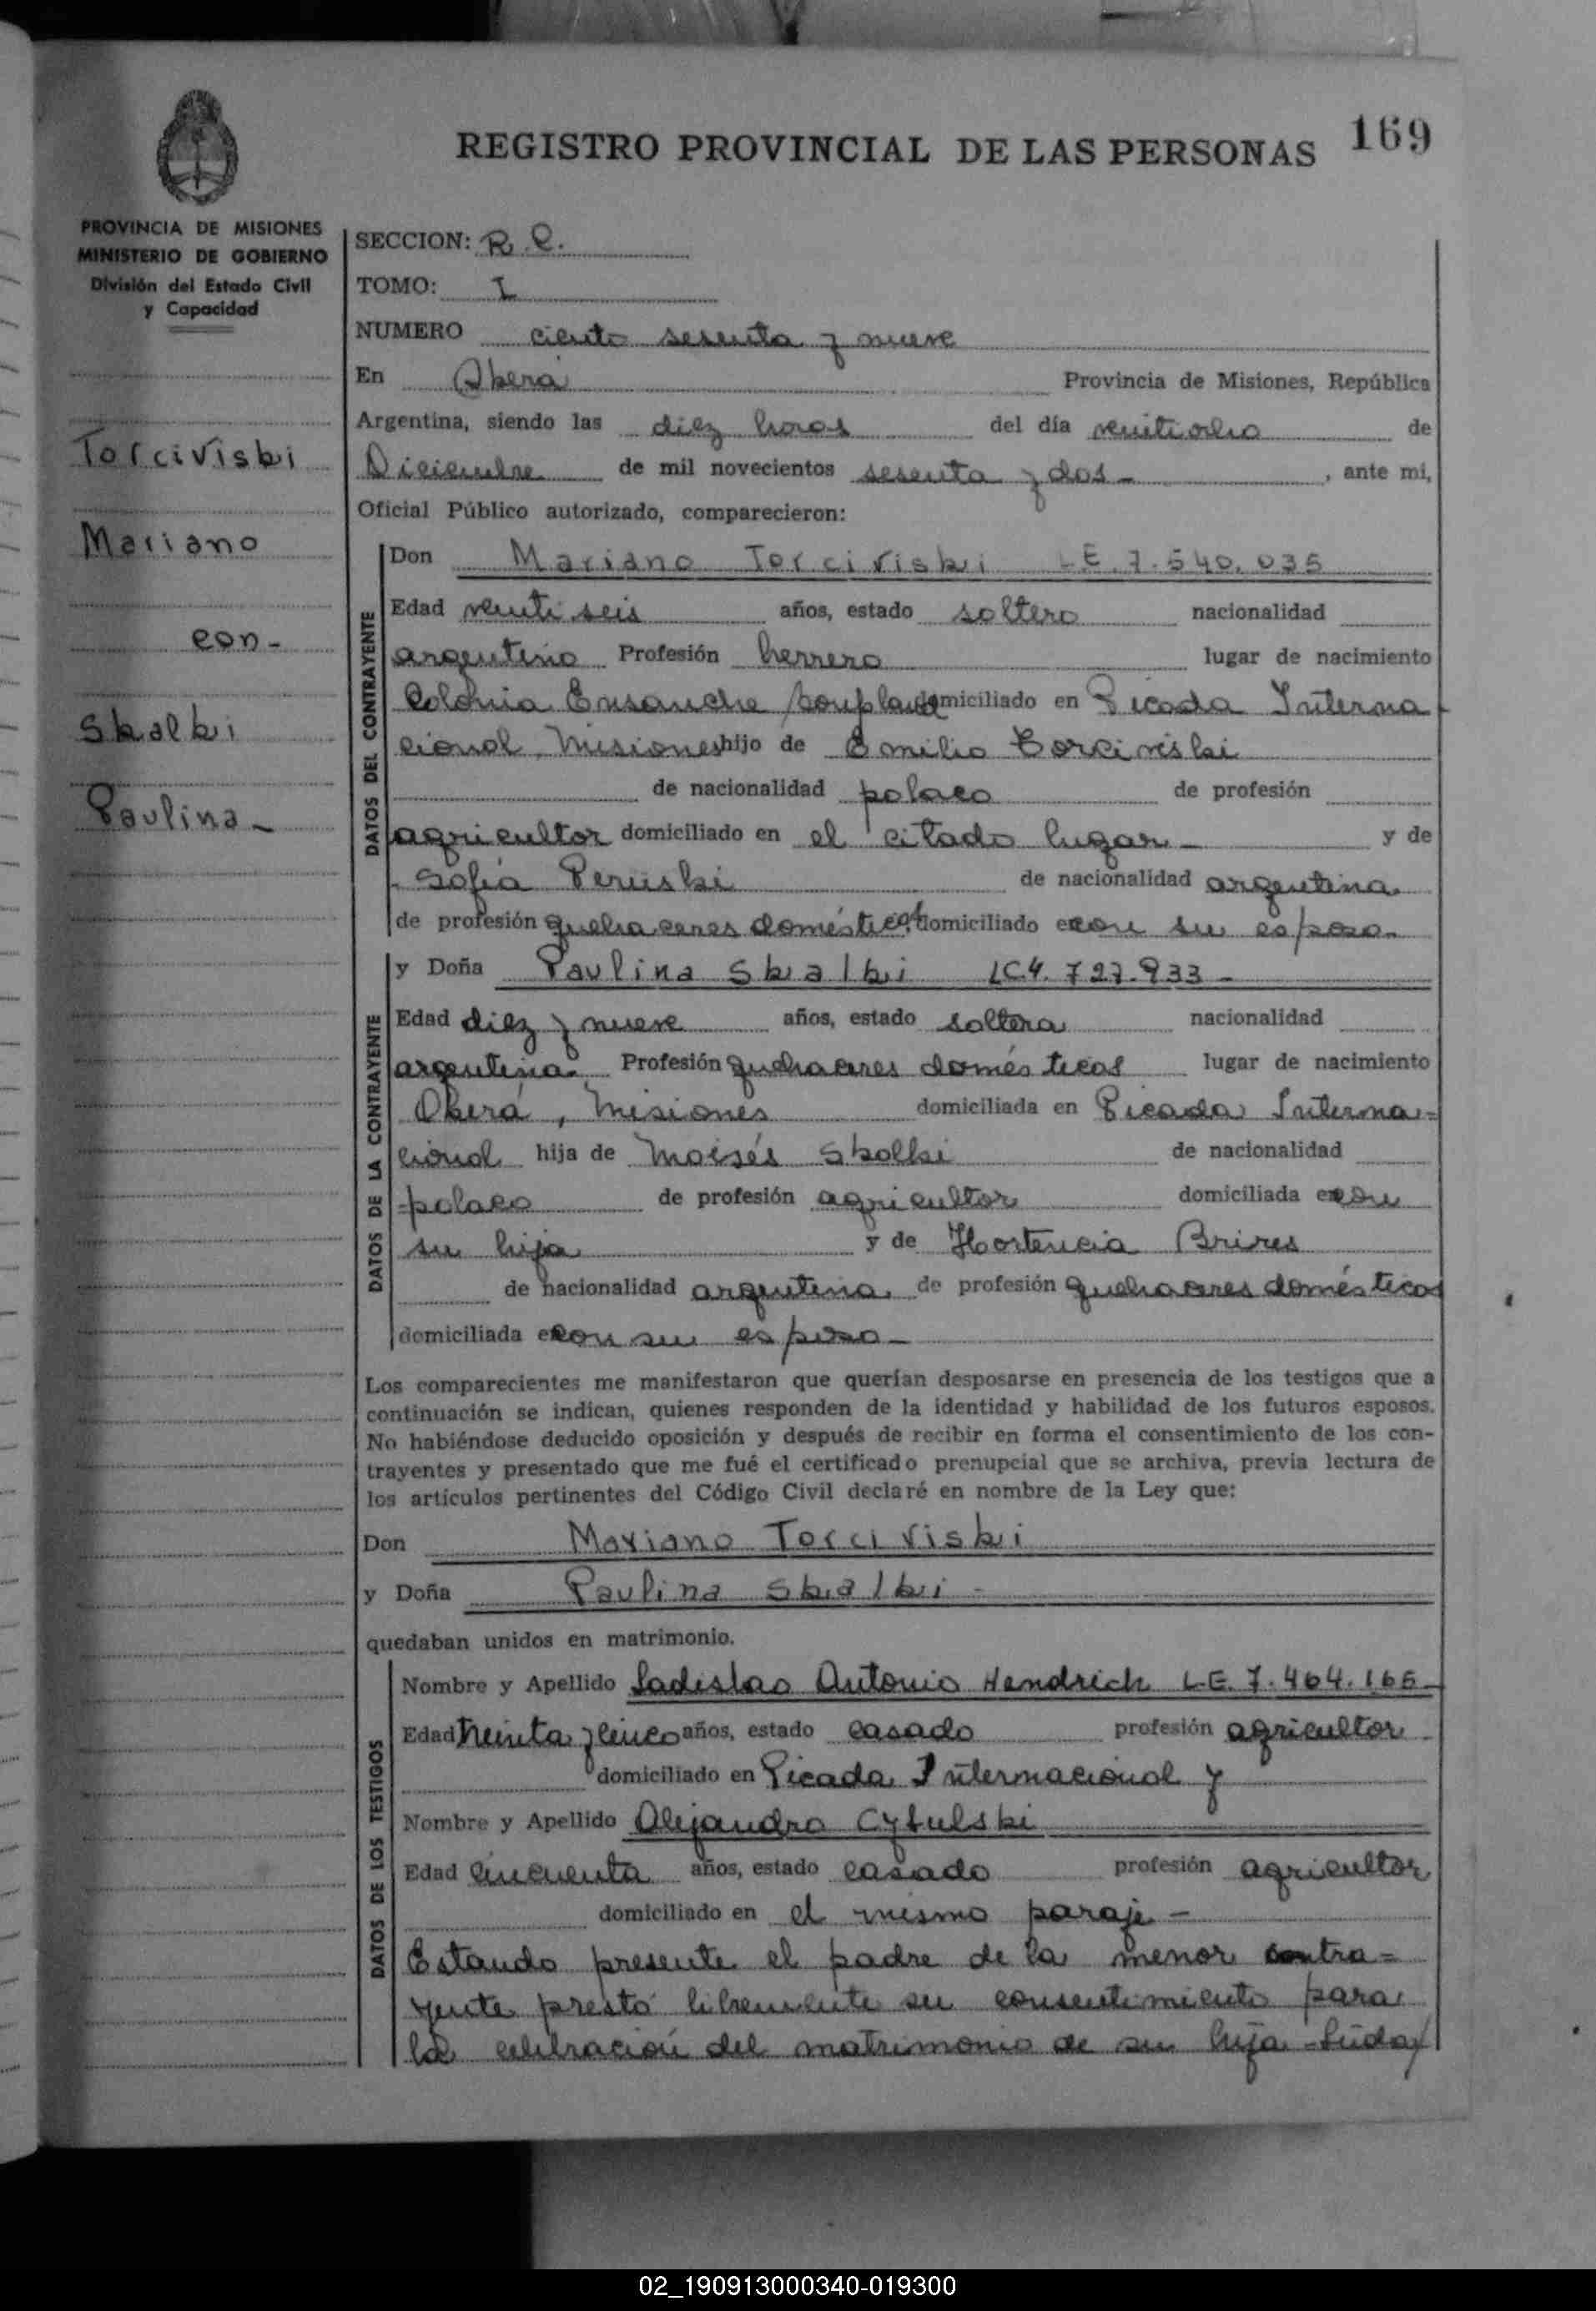 169
REGISTRO PROVINCIAL DE LAS PERSONAS
PROVINCIA DE MISIONES
MINISTERIO DE GOBIERNO
División del Estado Civil
y Capacidad
Torciviski
Mariano
con-
Skalki
Paulina-
SECCION: R.C.
TOMO: I
NUMERO ciento sesenta y nueve
En Oberá Provincia de Misiones, República
Argentina, siendo las diez horas del día veintiocho de
Diciembre de mil novecientos sesenta y dos- , ante mi,
Oficial Público autorizado, comparecieron:
DATOS DEL CONTRAYENTE
Don Mariano Torciviski LE. 7.540.035
Edad veintiseis años, estado soltero nacionalidad
argentino Profesión herrero lugar de nacimiento
Colonia Ensanche domiciliado en Picada Interna
cional, Misiones hijo de Emilio Torciviski
de nacionalidad polaco de profesión
agricultor domiciliado en el citado lugar- y de
Sofia Peruski de nacionalidad argentina
de profesión quehaceres domésticos domiciliado en con su esposo-
DATOS DE LA CONTRAYENTE
y Doña Paulina Skalki LC4.727.933-
Edad diez y nueve años, estado soltera nacionalidad
argentina Profesión quehaceres domésticos lugar de nacimiento
Oberá, Misiones domiciliada en Picada Interna-
cional hija de Moisés Skalki de nacionalidad
polaco de profesión agricultor domiciliada en con
su hija y de Hortencia Brires
de nacionalidad argentina de profesión quehaceres domésticos
domiciliada en con su esposo-
Los comparecientes me manifestaron que querían desposarse en presencia de los testigos que a
continuación se indican, quienes responden de la identidad y habilidad de los futuros esposos.
No habiéndose deducido oposición y después de recibir en forma el consentimiento de los con-
trayentes y presentado que me fué el certificado prenupcial que se archiva, previa lectura de
los artículos pertinentes del Código Civil declaré en nombre de la Ley que:
Don Mariano Torciviski
y Doña Paulina Skalki-
quedaban unidos en matrimonio.
DATOS DE LOS TESTIGOS
Nombre y Apellido Ladislao Antonio Hendrich LE. 7.464.165-
Edad treinta y cinco años, estado casado profesión agricultor
domiciliado en Picada Internacional y
Nombre y Apellido Alejandro Cytulski
Edad cincuenta años, estado casado profesión agricultor
domiciliado en el mismo paraje-
Estando presente el padre de la menor contra=
yente prestó libremente su consentimiento para
la celebración del matrimonio de su hija-Leída
02_190913000340-019300